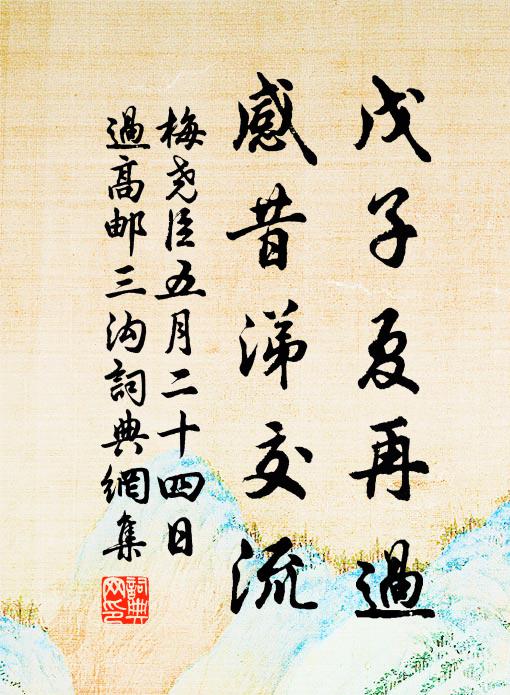 戊子夏再過
感昔涕交流
梅堯臣五月二十四日
過高邮三沟詞典網集
詞典網印